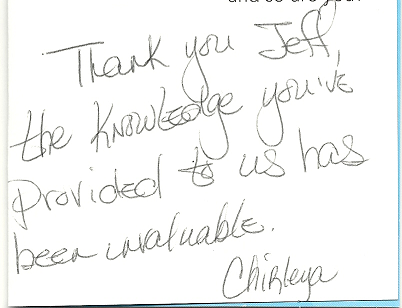 and so are you!
Thank you Jeff,
the Knowledge you've
provided to us has
been invaluable.
Chirleya